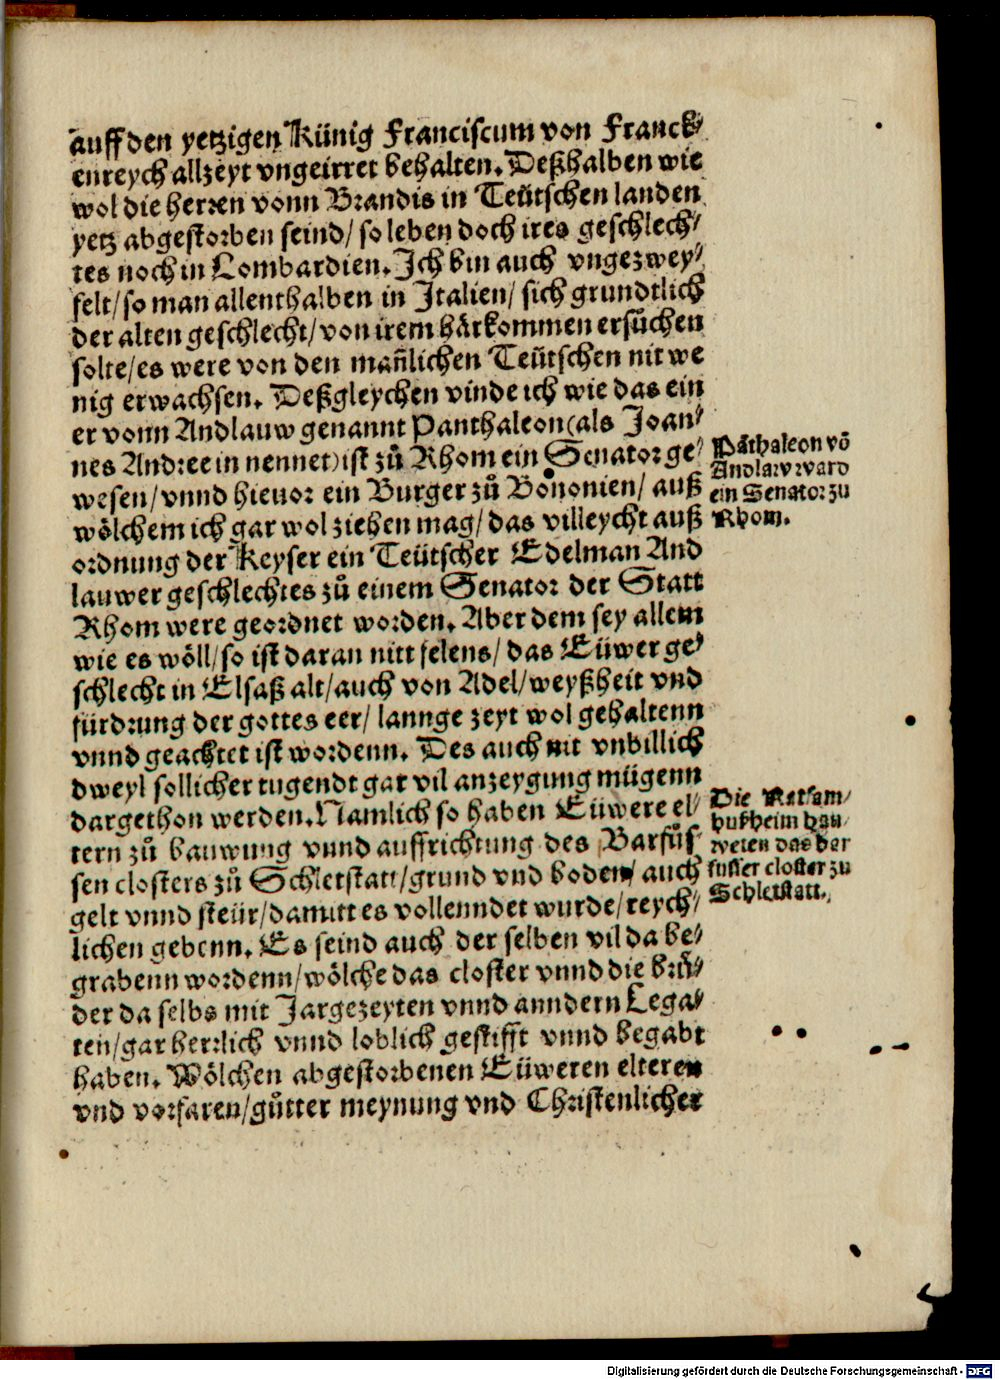 auff den yetzigen Künig Franciscum von Franck⸗
enreych allzeyt vngeirret behalten. Deßhalben wie
wol die herren vonn Brandis in Teütschen landen
yetz abgestorben seind/ so leben doch ires geschlech⸗
tes noch in Lombardien. Ich bin auch vngezwey⸗
felt/ so man allenthalben in Italien/ sich grundtlich
der alten geschlecht/ von irem härkommen ersuͦchen
solte/ es were von den mañlichen Teütschen nit we
nig erwachsen. Deßgleychen vinde ich wie das ein
er vonn Andlauw genannt Panthaleon (als Joan⸗
nes Andree in nennet) ist zuͦ Rhom ein Senator ge⸗
wesen/ vnnd hieuor ein Burger zuͦ Bononien/ auß
wölchem ich gar wol ziehen mag/ das villeycht auß
ordnung der Keyser ein Teütscher Edelman And
lauwer geschlechtes zuͦ einem Senator der Statt
Rhom were geordnet worden. Aber dem sey allem
wie es wöll/ so ist daran nitt felens/ das Eüwer ge⸗
schlecht in Elsaß alt/ auch von Adel/ weyßheit vnd
fürdrung der gottes eer/ lannge zeyt wol gehaltenn
vnnd geachtet ist wordenn. Des auch nit vnbillich
dweyl sollicher tugendt gar vil anzeygung mügenn
dargethon werden. Namlich so haben Eüwere el⸗
tern zuͦ bauwung vnnd auffrichtung des Barfuͦs⸗
sen closters zuͦ Schletstatt/ grund vnd boden/ auch
gelt vnnd steür/ damitt es vollenndet wurde/ reych⸗
lichen gebenn. Es seind auch der selben vil da be⸗
grabenn wordenn/ wölche das closter vnnd die bruͤ⸗
der da selbs mit Jargezeyten vnnd anndern Lega⸗
ten/ gar herrlich vnnd loblich gestifft vnnd begabt
haben. Wölchen abgestorbenen Eüweren elteren
vnd vorfaren/ guͦtter meynung vnd Christenlicher
Pãthaleon võ
Andlaw ward
ein Senator zu
Rhom.
Die Ratsam⸗
hußheim bau⸗
weten das bar
fusser closter zu
Schletstatt.
Digitalisierung gefördert durch die Deutsche Forschungsgemeinschaft - DFG